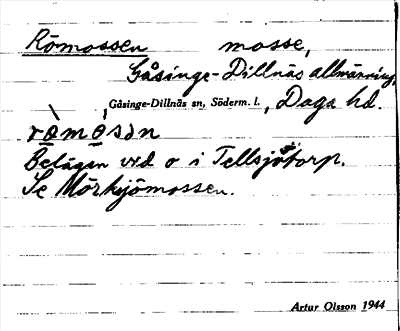 Römossen mosse,
Gåsinge-Dillnäs allmänning,
Gåsinge-Dillnäs sn, Söderm. l., Daga hd.
Belägen vid o i Tellsjötorp.
Se Mörksjömossen.
Artur Olsson 1944